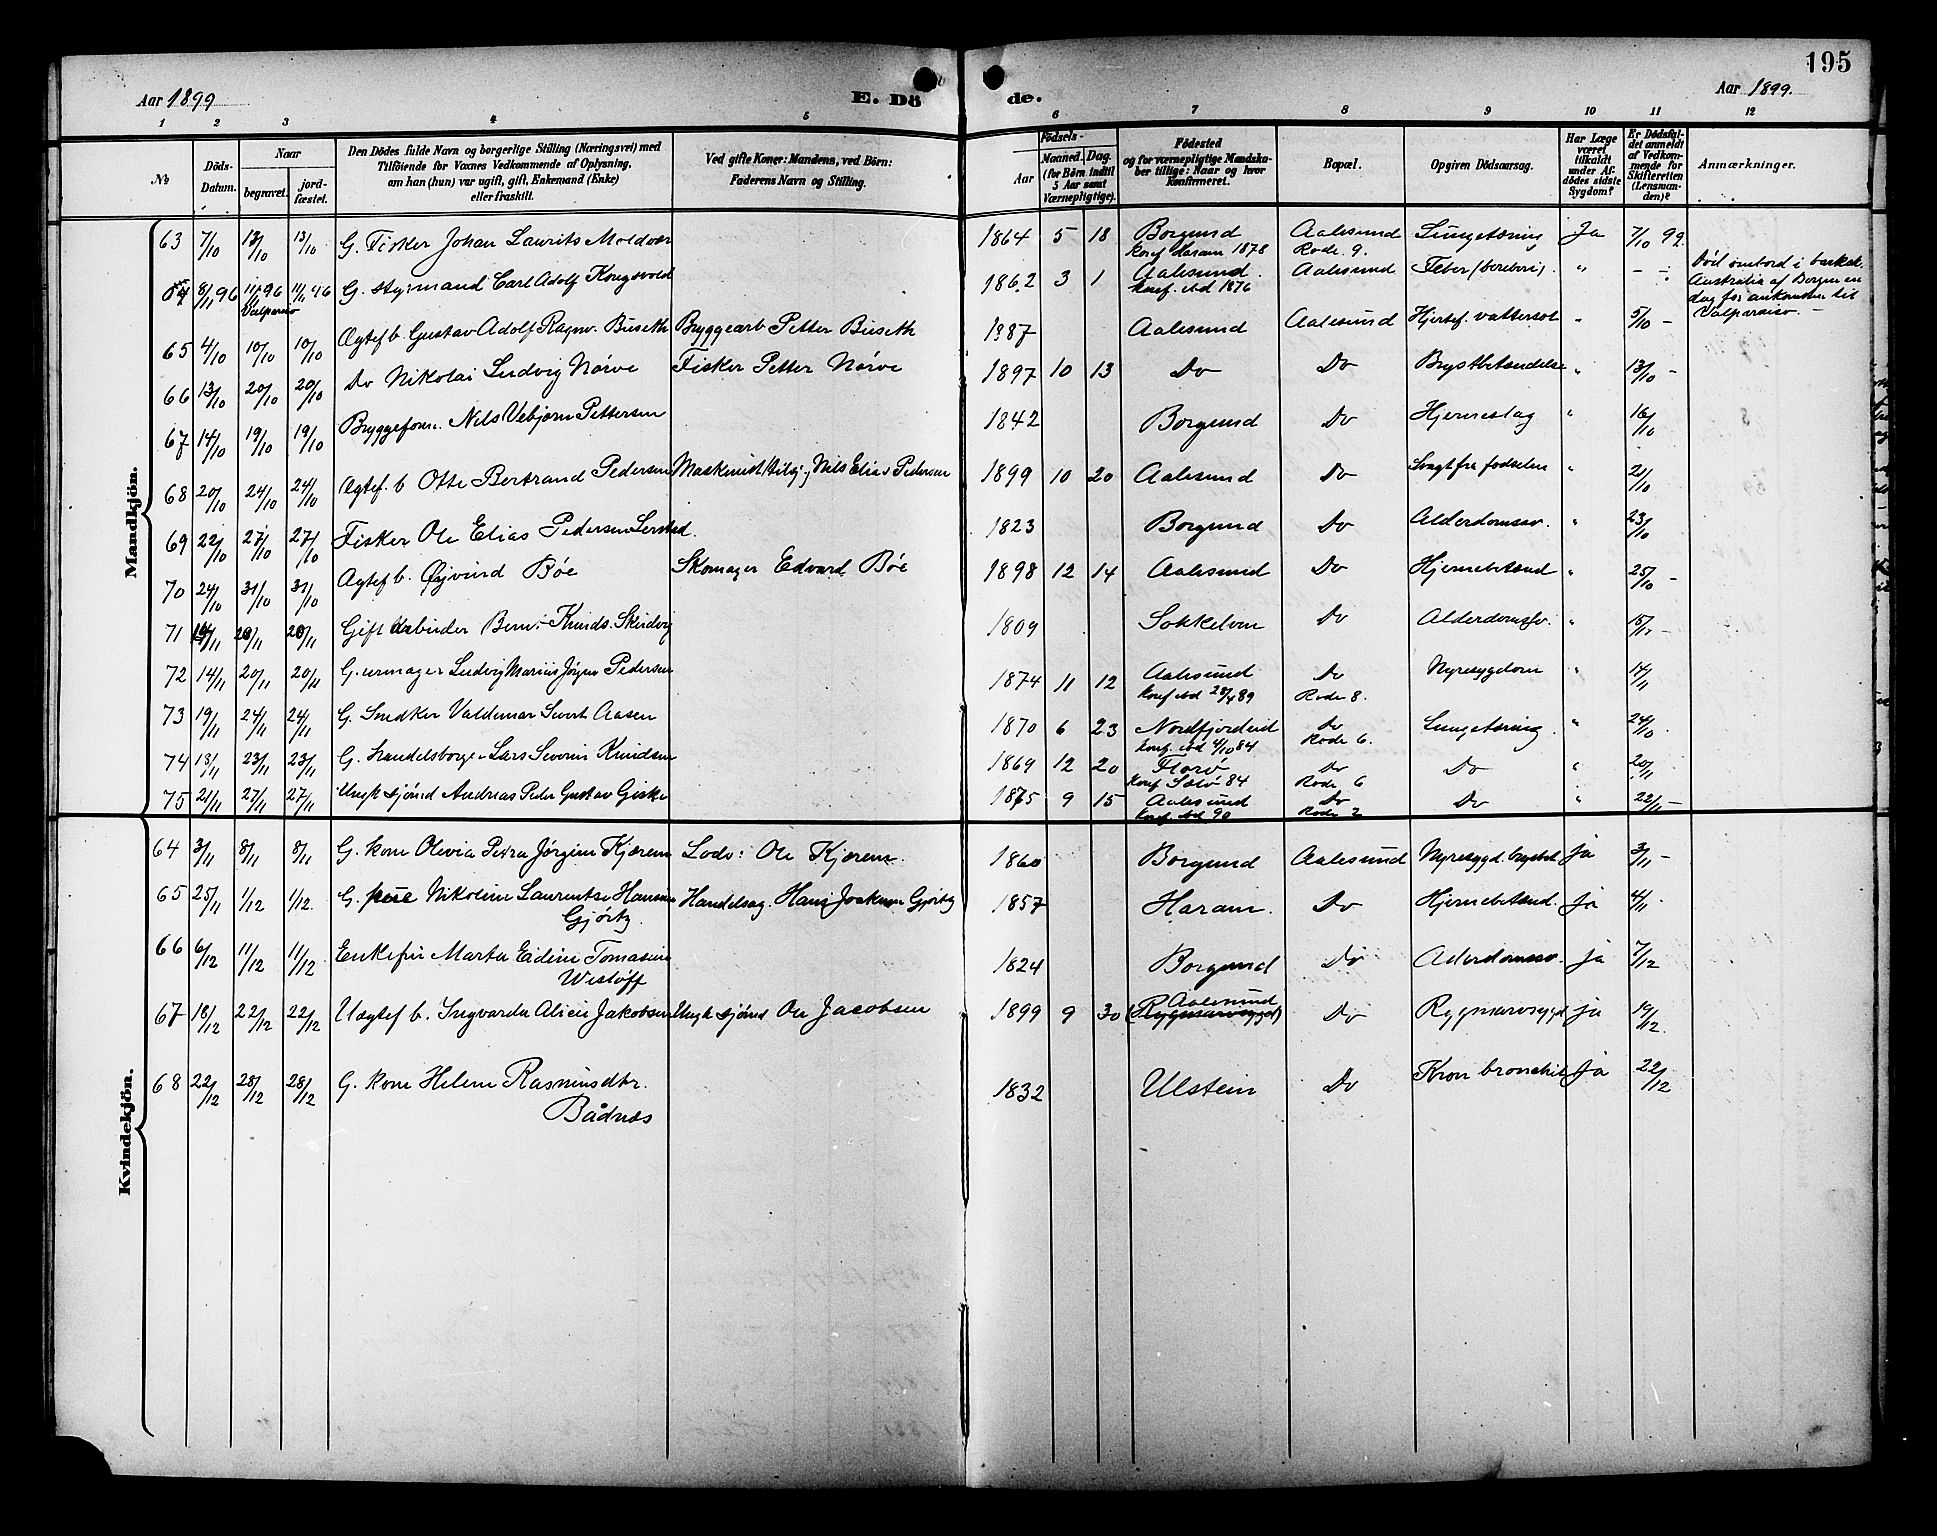 195
Aar 1899
E. Dö de.
Aar 1899.
1 2 3 4 5 6 7 8 9 10 11 12
№
Döds-Datum.
Naar
begravet.
jord-fæstet.
Den Dödes fulde Navn og borgerlige Stilling (Næringsvei) med
Tilföiende for Voxnes Vedkommende af Oplysning,
om han (hun) var ugift, gift, Enkemand (Enke)
eller fraskilt.
Ved gifte Koner: Mandens, ved Börn:
Faderens Navn og Stilling.
Födsels-
Aar
Maaned. Dag.
(for Börn indtil
5 Aar samt
Værnepligtige).
Födested
og for værnepligtige Mandska-
ber tillige: Naar og hvor
Konfirmeret.
Bopæl.
Opgiven Dödsaarsag.
Har Læge
været
tilkaldt
under Af-
dödes sidste
Sygdom?
Er Dödsfal-
det anmeldt
af Vedkom-
mende for
Skifteretten
(Lensman-
den)?
Anmærkninger.
Mandkjön.
63 7/10 13/10 13/10 G. Fisker Johan Laurits Moldvær 1864 5 18 Borgund Aalesund Lungetæring Ja 7/10 99.
konf Haram 1878 Rode 9.
64 8/11 96 11/11 96 11/11 96 G. styrmand Carl Adolf Kongsvold 1862 3 1 Aalesund. Aalesund Feber (bereberi). " - -
Valparaiso konf. ibd 1876
Död ombord i barksk.
Australia af Bergen en
dag før ankomsten til
Valparaiso. -
65 4/10 10/10 10/10 Ægtef b. Gustav Adolf Ragnv. Buseth Bryggearb Petter Buseth 1887 Aalesund Aalesund Hjertef. vattersot " 5/10 -
66 13/10 20/10 20/10 Do Nikolai Ludvig Nørve Fisker Petter Nørve 1897 10 13 Do Do Brystbetændelse " 13/10 -
67 14/10 19/10 19/10 Bryggeform. Nils Vebjørn Pettersen 1842 Borgund Do Hjerneslag " 16/10
68 20/10 24/10 24/10 Ægtef. b Otte Bertrand Pedersen Maskinist Nils Elias Pedersen 1899 10 20 Aalesund Do Svagt fra fødselen " 21/10
69 22/10 27/10 27/10 Fisker Ole Elias Pedersen Lerstad. 1823 Borgund Do Alderdomssv. " 23/10
70 24/10 31/10 31/10 Ægtef b. Øyvind Bøe Skomager Edvard Bøe 1898 12 14 Aalesund Do Hjernebetænd " 25/10 -
71 14/11 20/11 20/11 Gift Arbeider Knuds. 1809 Sokkelven Do Alderdomssv. " 15/11 -
72 14/11 20/11 20/11 G. urmager Ludvig Marius Jørgen Pedersen 1874 11 12 Aalesund Do Nyresygdom " 14/11
konf ibd 28/4 89 Rode 8.
73 19/11 24/11 24/11 G. Snedker Valdemar Sivert Aasen 1870 6 23 Nordfjordeid Do Lungetæring " 24/10
konf. ibd 4/10 84 Rode 6.
74 13/11 23/11 23/11 G. handelsborger Lars Severin Knudsen 1869 12 20 Florø Do Do " 20/11
konf 84 Rode 6
75 21/11 27/11 27/11 Ungk sjømd Andreas Peder Gustav Giske 1875 9 15 Aalesund Do Do " 22/11 -
konf ibd 90 Rode 2
Kvindekjön.
64 3/11 8/11 8/11 G. kone Olivia Petra Jørgine Kjærem Lods: Ole Kjærem. 1860 Borgund Aalesund Nyresygd. Ja 3/11 -
65 25/11 1/12 1/12 G. frue Nikoline Laurentse Hansine Handelsag. Hans Joakim Gjørtz 1857 Haram. Do Hjernebetænd. Ja 4/11 -
Gjørtz
66 6/12 11/12 11/12 Enkefru Marta Eidine Tomasine 1824 Borgund Do Aderdomssv. Ja 7/12
Wistøff
67 18/12 22/12 22/12 Uægtef b. Ingvarda Alice Jakobsen Ungk sjømd Ole Jacobsen 1899 9 30 Aalesund Do Rygmarvsygd Ja 19/12
(Rygmarvsygd)
68 22/12 28/12 28/12 G. kone Helene Rasmusdtr. 1832 Ulstein Do Kron bronchit Ja 22/12
Bådnæs